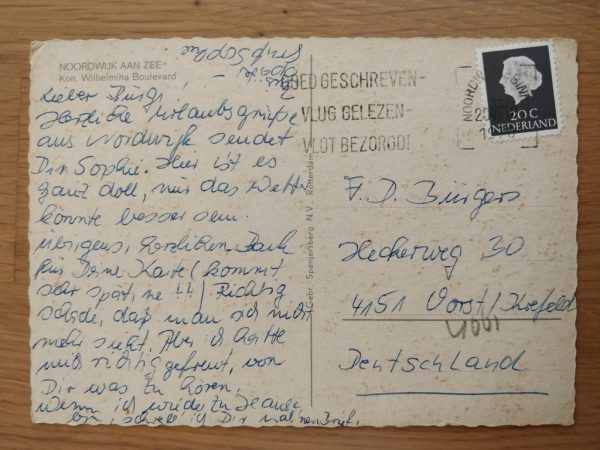 NOORDWIJK AAN ZEE
Kon. Wilhelmina Boulevard
Lieber Bürgi,
Herzliche Urlaubsgrüße
aus Nordwijk sendet
Dir Sophie. Hier ist es
ganz doll, nur das Wetter
könnte besser sein.
Übrigens, herzlichen Dank
für Deine Karte (kommt
sehr spät, ne!!) Richtig
schade, daß man sich nicht
mehr sieht. Aber ich hatte
mich richtig gefreut, von
Dir was zu hören.
Wenn ich wieder zu Hause
bin, schreib ich Dir mal nen Brief.
Sophie
Gebr. Spanjersberg N.V. Rotterdam
GOED GESCHREVEN-
VLUG GELEZEN-
VLOT BEZORGD!
NOORDWIJK
20 C
NEDERLAND
F. D. Bürgers
Heckerweg 30
4151 Vorst/Krefeld
Deutschland